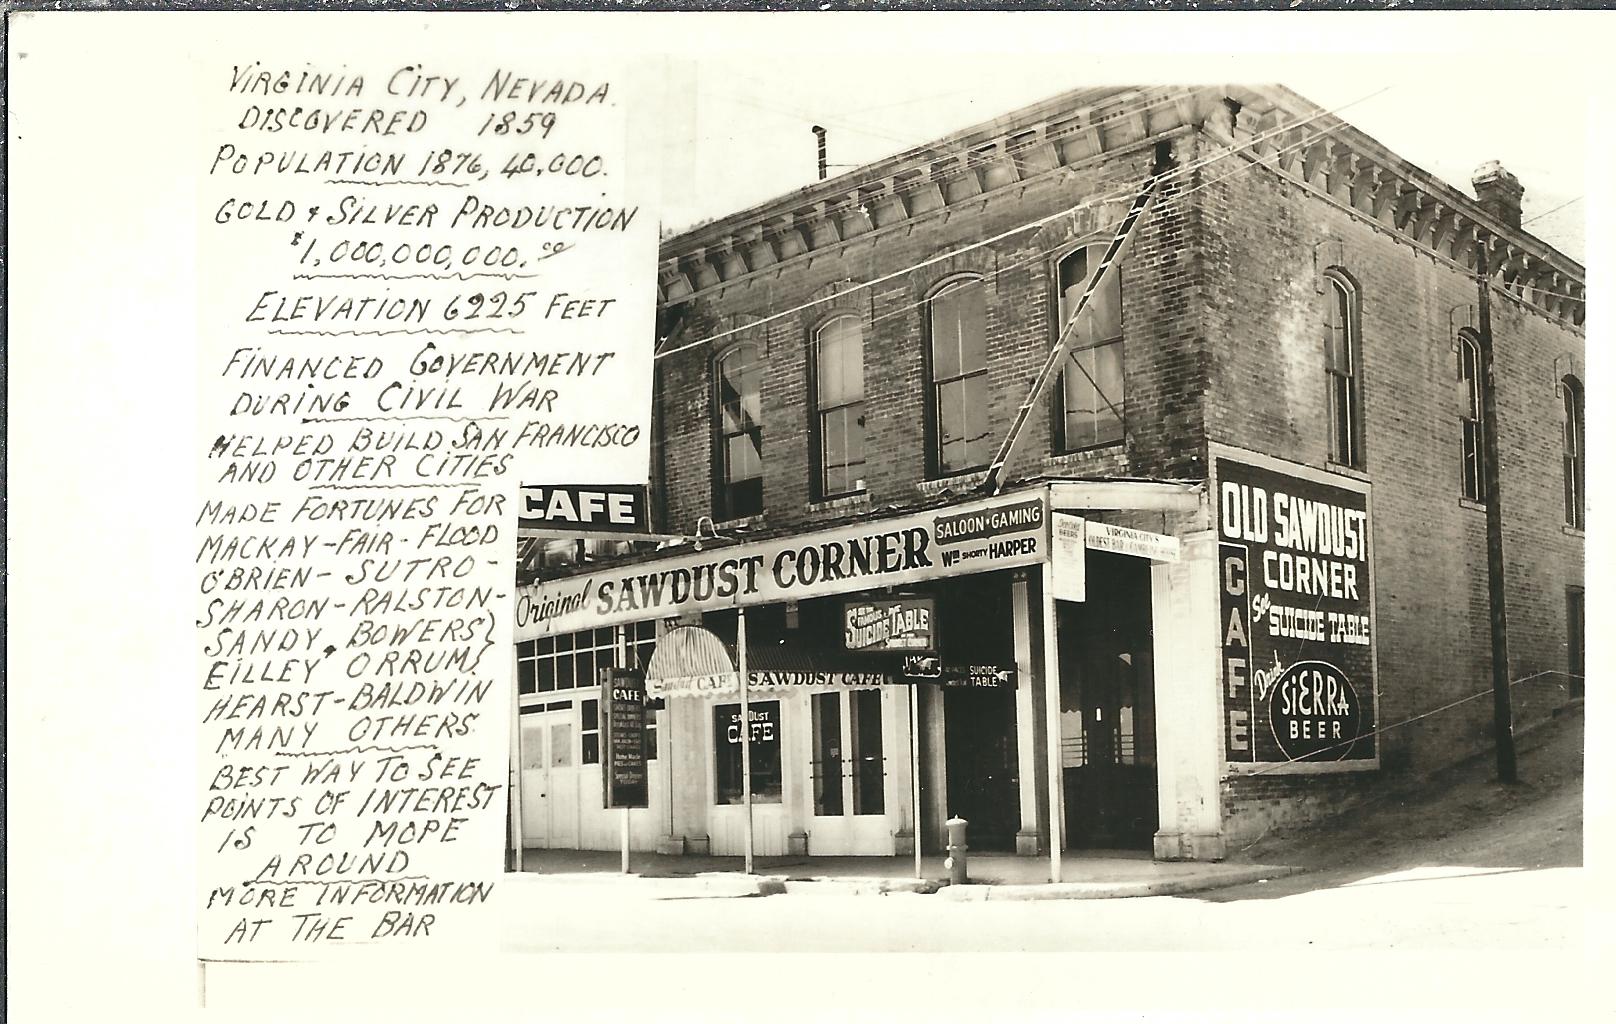 VIRGINIA CITY, NEVADA.
DISCOVERED 1859
POPULATION 1876, 40,000.
GOLD & SILVER PRODUCTION
$1,000,000,000.00
ELEVATION 6225 FEET
FINANCED GOVERNMENT
DURING CIVIL WAR
HELPED BUILD SAN FRANCISCO
AND OTHER CITIES
MADE FORTUNES FOR
MACKAY-FAIR-FLOOD
O'BRIEN-SUTRO-
SHARON-RALSTON-
SANDY BOWERS}
EILLEY ORRUM}
HEARST-BALDWIN
MANY OTHERS.
BEST WAY TO SEE
POINTS OF INTEREST
IS TO MOPE
AROUND
MORE INFORMATION
AT THE BAR
CAFE
Original SAWDUST CORNER
SALOON·GAMING
Wm SHORTY HARPER
VIRGINIA CITY'S
OLDEST BAR
SUICIDE TABLE
SUICIDE
TABLE
CAFE SAWDUST CAFE
SAWDUST
CAFE
CAFE
Home Made
OLD SAWDUST
CORNER
See SUICIDE TABLE
CAFE
Drink
SiERRA
BEER